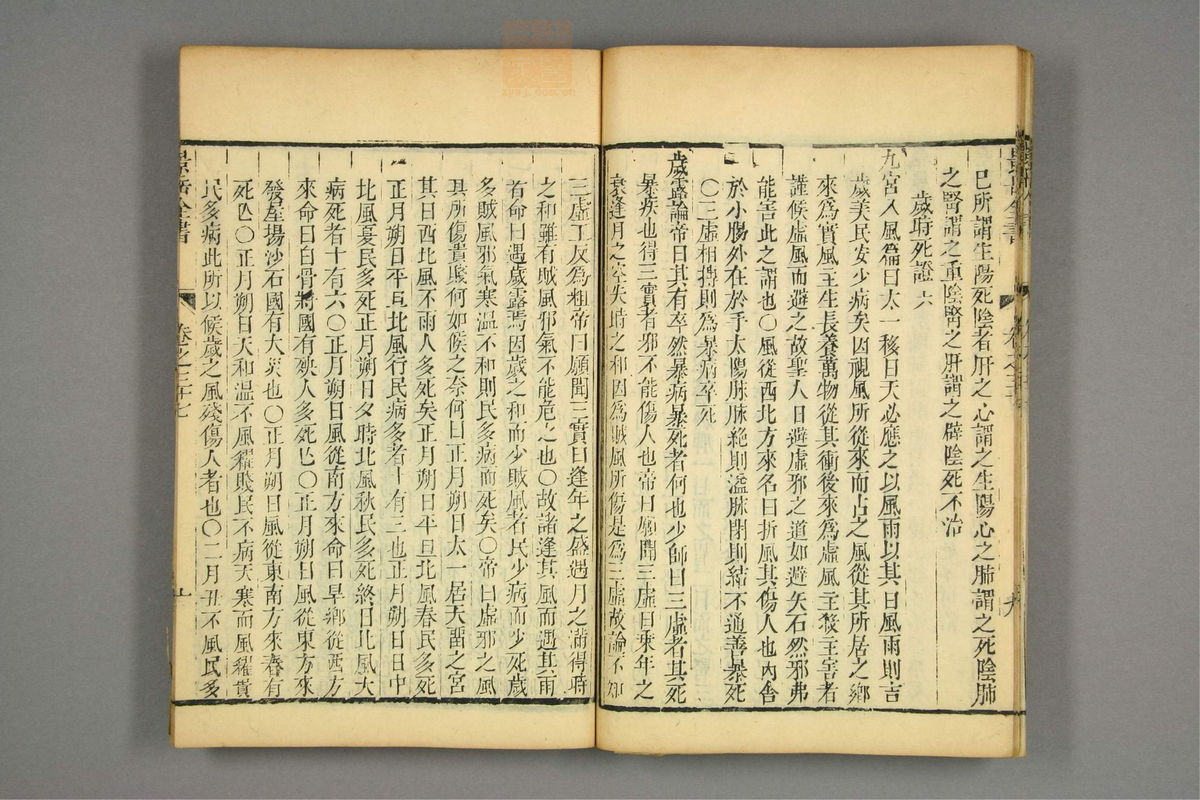 巳所謂生陽死陰者肝之心謂之生陽心之肺謂之死陰肺
之腎謂之重陰腎之肝謂之辟陰死不治
歲時死證 六
九宮八風篇曰太一移日天必應之以風雨以其日風雨則吉
歲美民安少病矣因視風所從來而占之風從其所居之鄉
來為實風主生長養萬物從其衝後來為虛風主殺主害者
謹候虛風而避之故聖人日避虛邪之道如避矢石然邪弗
能害此之謂也〇風從西北方來名曰折風其傷人也內舍
於小腸外在於手太陽脉脉絶則溢脉閉則結不通善暴死
〇三虛相搏則為暴病卒死
歲露論帝曰其有卒然暴病暴死者何也少師曰三虛者其死
暴疾也得三實者邪不能傷人也帝曰願聞三虛曰乘年之
衰逢月之空失時之和因為賊風所傷是為三虛故論不知
三虛工反為粗帝曰願聞三實曰逢年之盛遇月之滿得時
之和雖有賊風邪氣不能危之也〇故諸逢其風而遇其雨
者命曰遇歲露焉因歲之和而少賊風者民少病而少死歲
多賊風邪氣寒温不和則民多病而死矣〇帝曰虛邪之風
其所傷貴賤何如候之奈何曰正月朔日太一居天留之宮
其日西北風不雨人多死矣正月朔日平旦北風春民多死
正月朔日平旦北風行民病多者十有三也正月朔日日中
北風夏民多死正月朔日夕時北風秋民多死終日北風大
病死者十有六〇正月朔日風從南方來命曰旱鄉從西方
來命曰白骨將國有殃人多死亡〇正月朔日風從東方來
發屋揚沙石國有大災也〇正月朔日風從東南方來春有
死亡〇正月朔日天和温不風糴賤民不病天寒而風糴貴
民多病此所以候歲之風殘傷人者也〇二月丑不風民多
景岳全書
卷之三十七